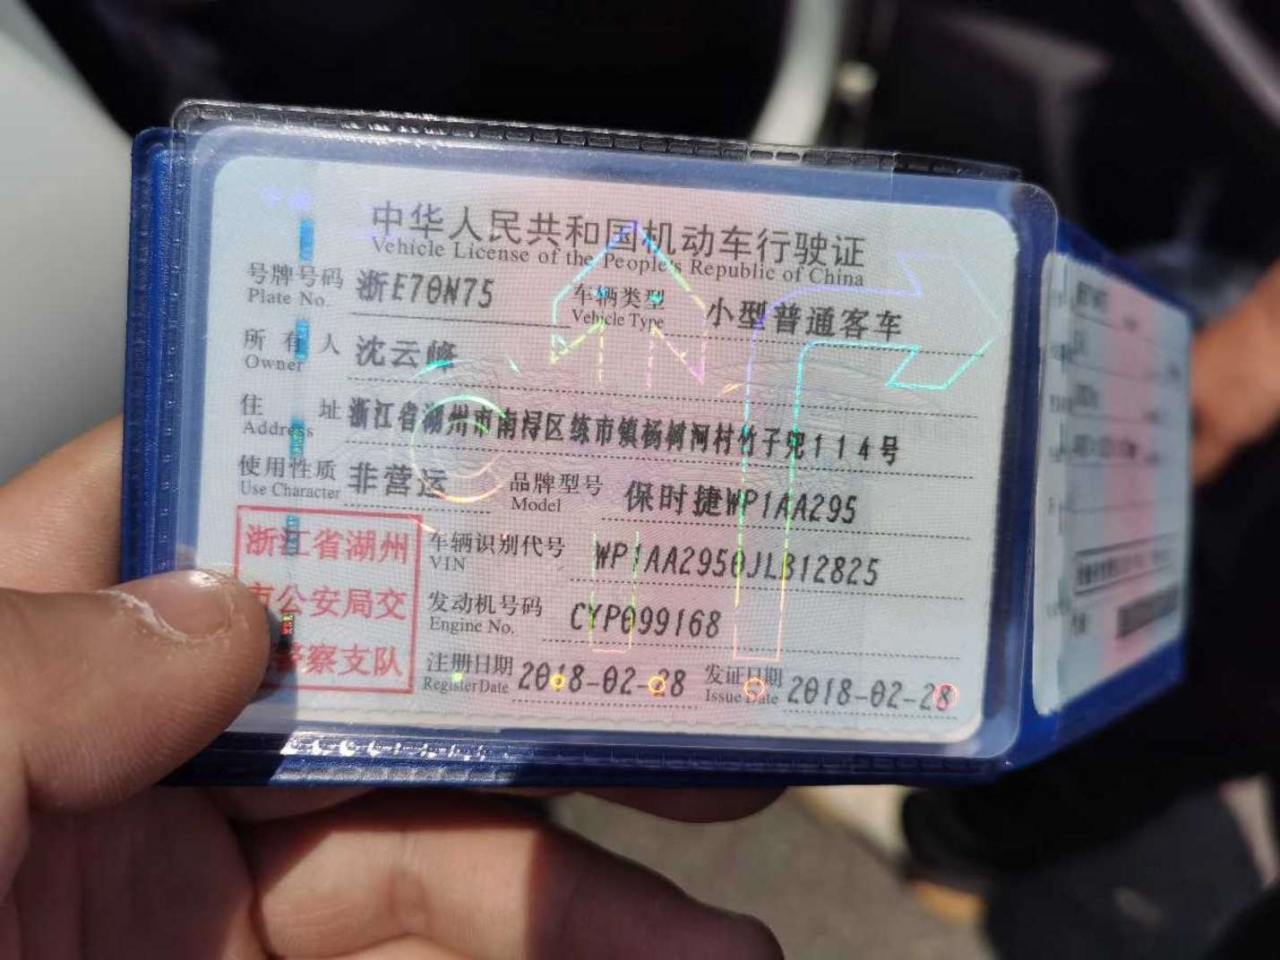 中华人民共和国机动车行驶证
Vehicle License of the People's Republic of China
号牌号码 浙E70N75 车辆类型 小型普通客车
Plate No. Vehicle Type
所有人 沈云峰
Owner
住址 浙江省湖州市南浔区练市镇杨树河村竹子兜114号
Address
使用性质 非营运 品牌型号 保时捷WP1AA295
Use Character Model
浙江省湖州
市公安局交
警察支队
车辆识别代号 WP1AA2950JLB12825
VIN
发动机号码 CYP099168
Engine No.
注册日期 2018-02-28 发证日期 2018-02-28
Register Date Issue Date